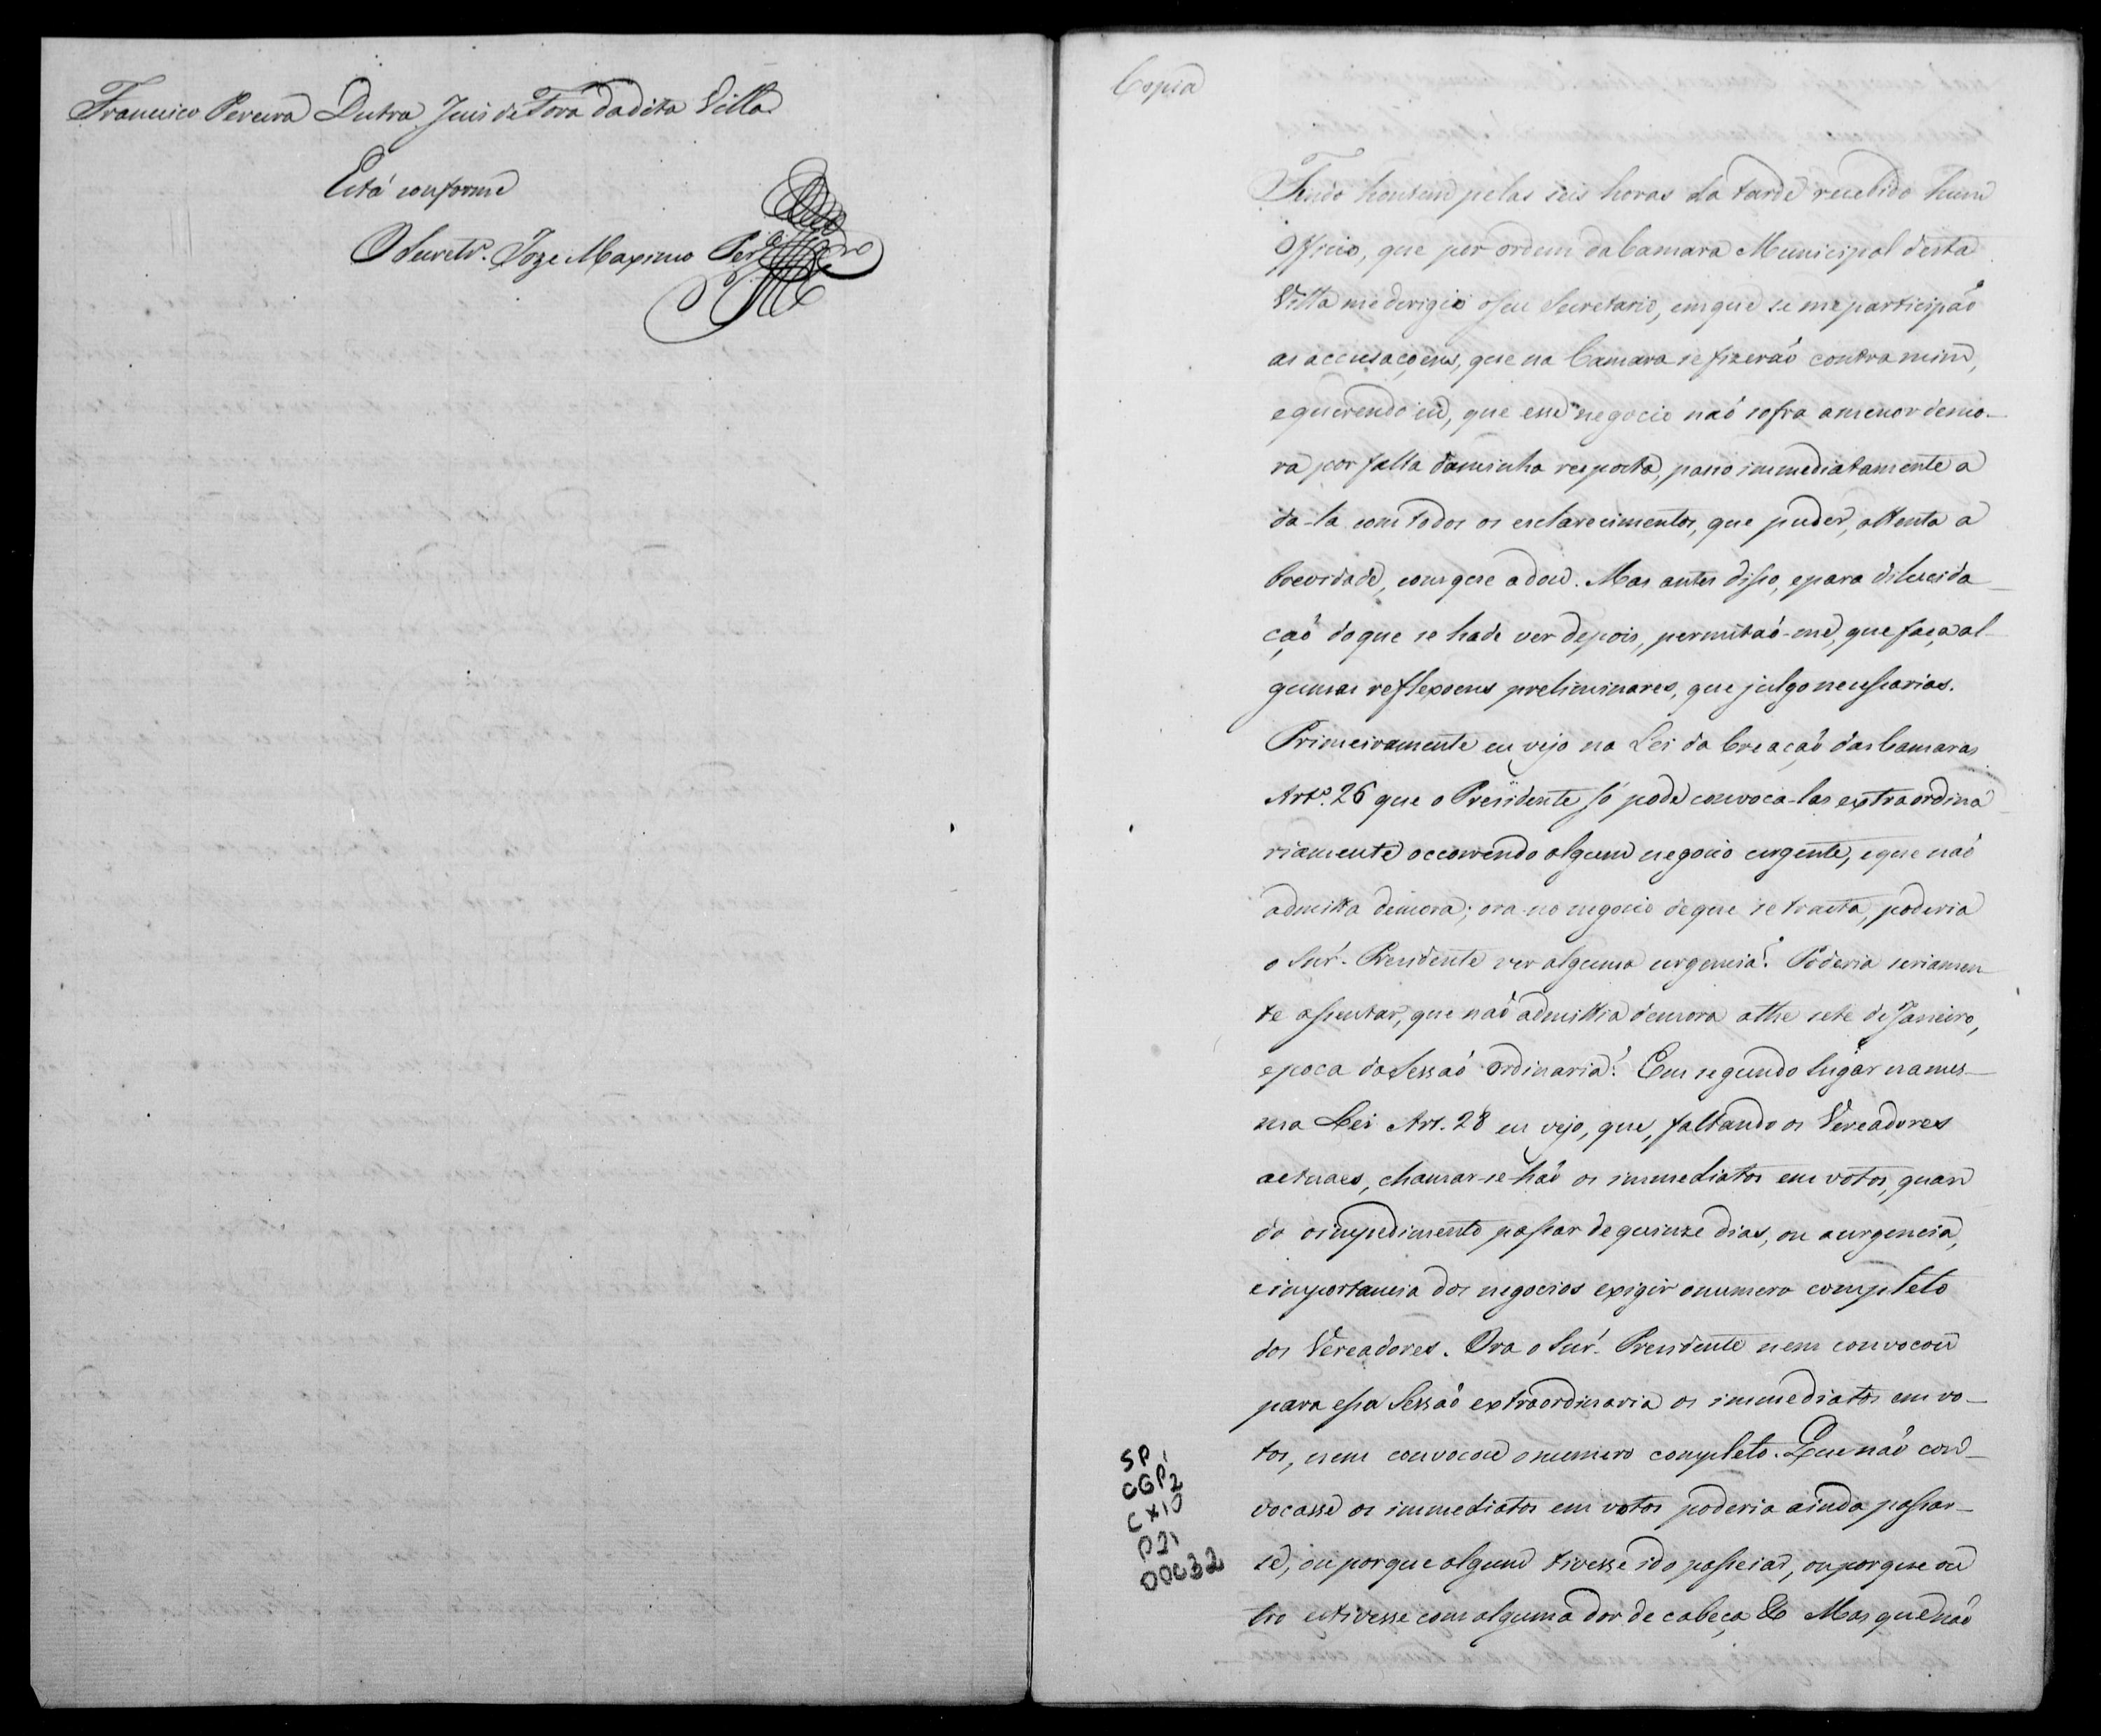 Francisco Pereira Dutra Juis de Fora da dita Villa
Está conforme
O Secretr.º Joze Maximo
Copia
Tendo hontem pelas seis horas da tarde recebido hum
Officio, que por ordem da Camara Municipal desta
Villa me derigio o seu Secretario, em que se me participão
as accusaçoens, que na Camara se fizerão contra mim,
e querendo eu, que esse negocio não sofra a menor demo-
ra por falta da minha resposta, passo immediatamente a
da-la com todos os esclarecimentos, que puder, attenta a
brevidade, com que a dou. Mas antes disso, e para dilucida-
ção do que se hade ver depois, permitão-me, que faça al-
gumas reflexoens preliminares, que julgo necessarias.
Primeiramente eu vejo na Lei da Creação das Camaras
Artº. 26 que o Presidente só pode convoca-las extraordina-
riamente occorrendo algum negocio urgente, e que não
admitta demora; ora no negocio de que se tracta, poderia
o Snr. Presidente ver alguma urgencia? Poderia seriamen-
te assentar, que não admittia demora athe sete de Janeiro,
epoca da Sessão ordinaria? Em segundo lugar na mes-
ma Lei Art. 28 eu vejo, que, faltando os Vereadores
actuaes, chamar-se-hão os immediatos em votos, quan
do o impedimento passar de quinze dias, ou a urgencia,
e importancia dos negocios exigir o numero completo
dos Vereadores. Ora o Snr. Presidente nem convocou
para essa Sessão extraordinaria os immediatos em vo-
tos, nem convocou o numero completo. Que não con-
vocasse os immediatos em votos poderia ainda passar-
se, ou porque algum tivesse ido passeiar, ou porque ou
tro estivesse com alguma dor de cabeça & Mas que não
SP1
CGP2
CX10
P21
00032